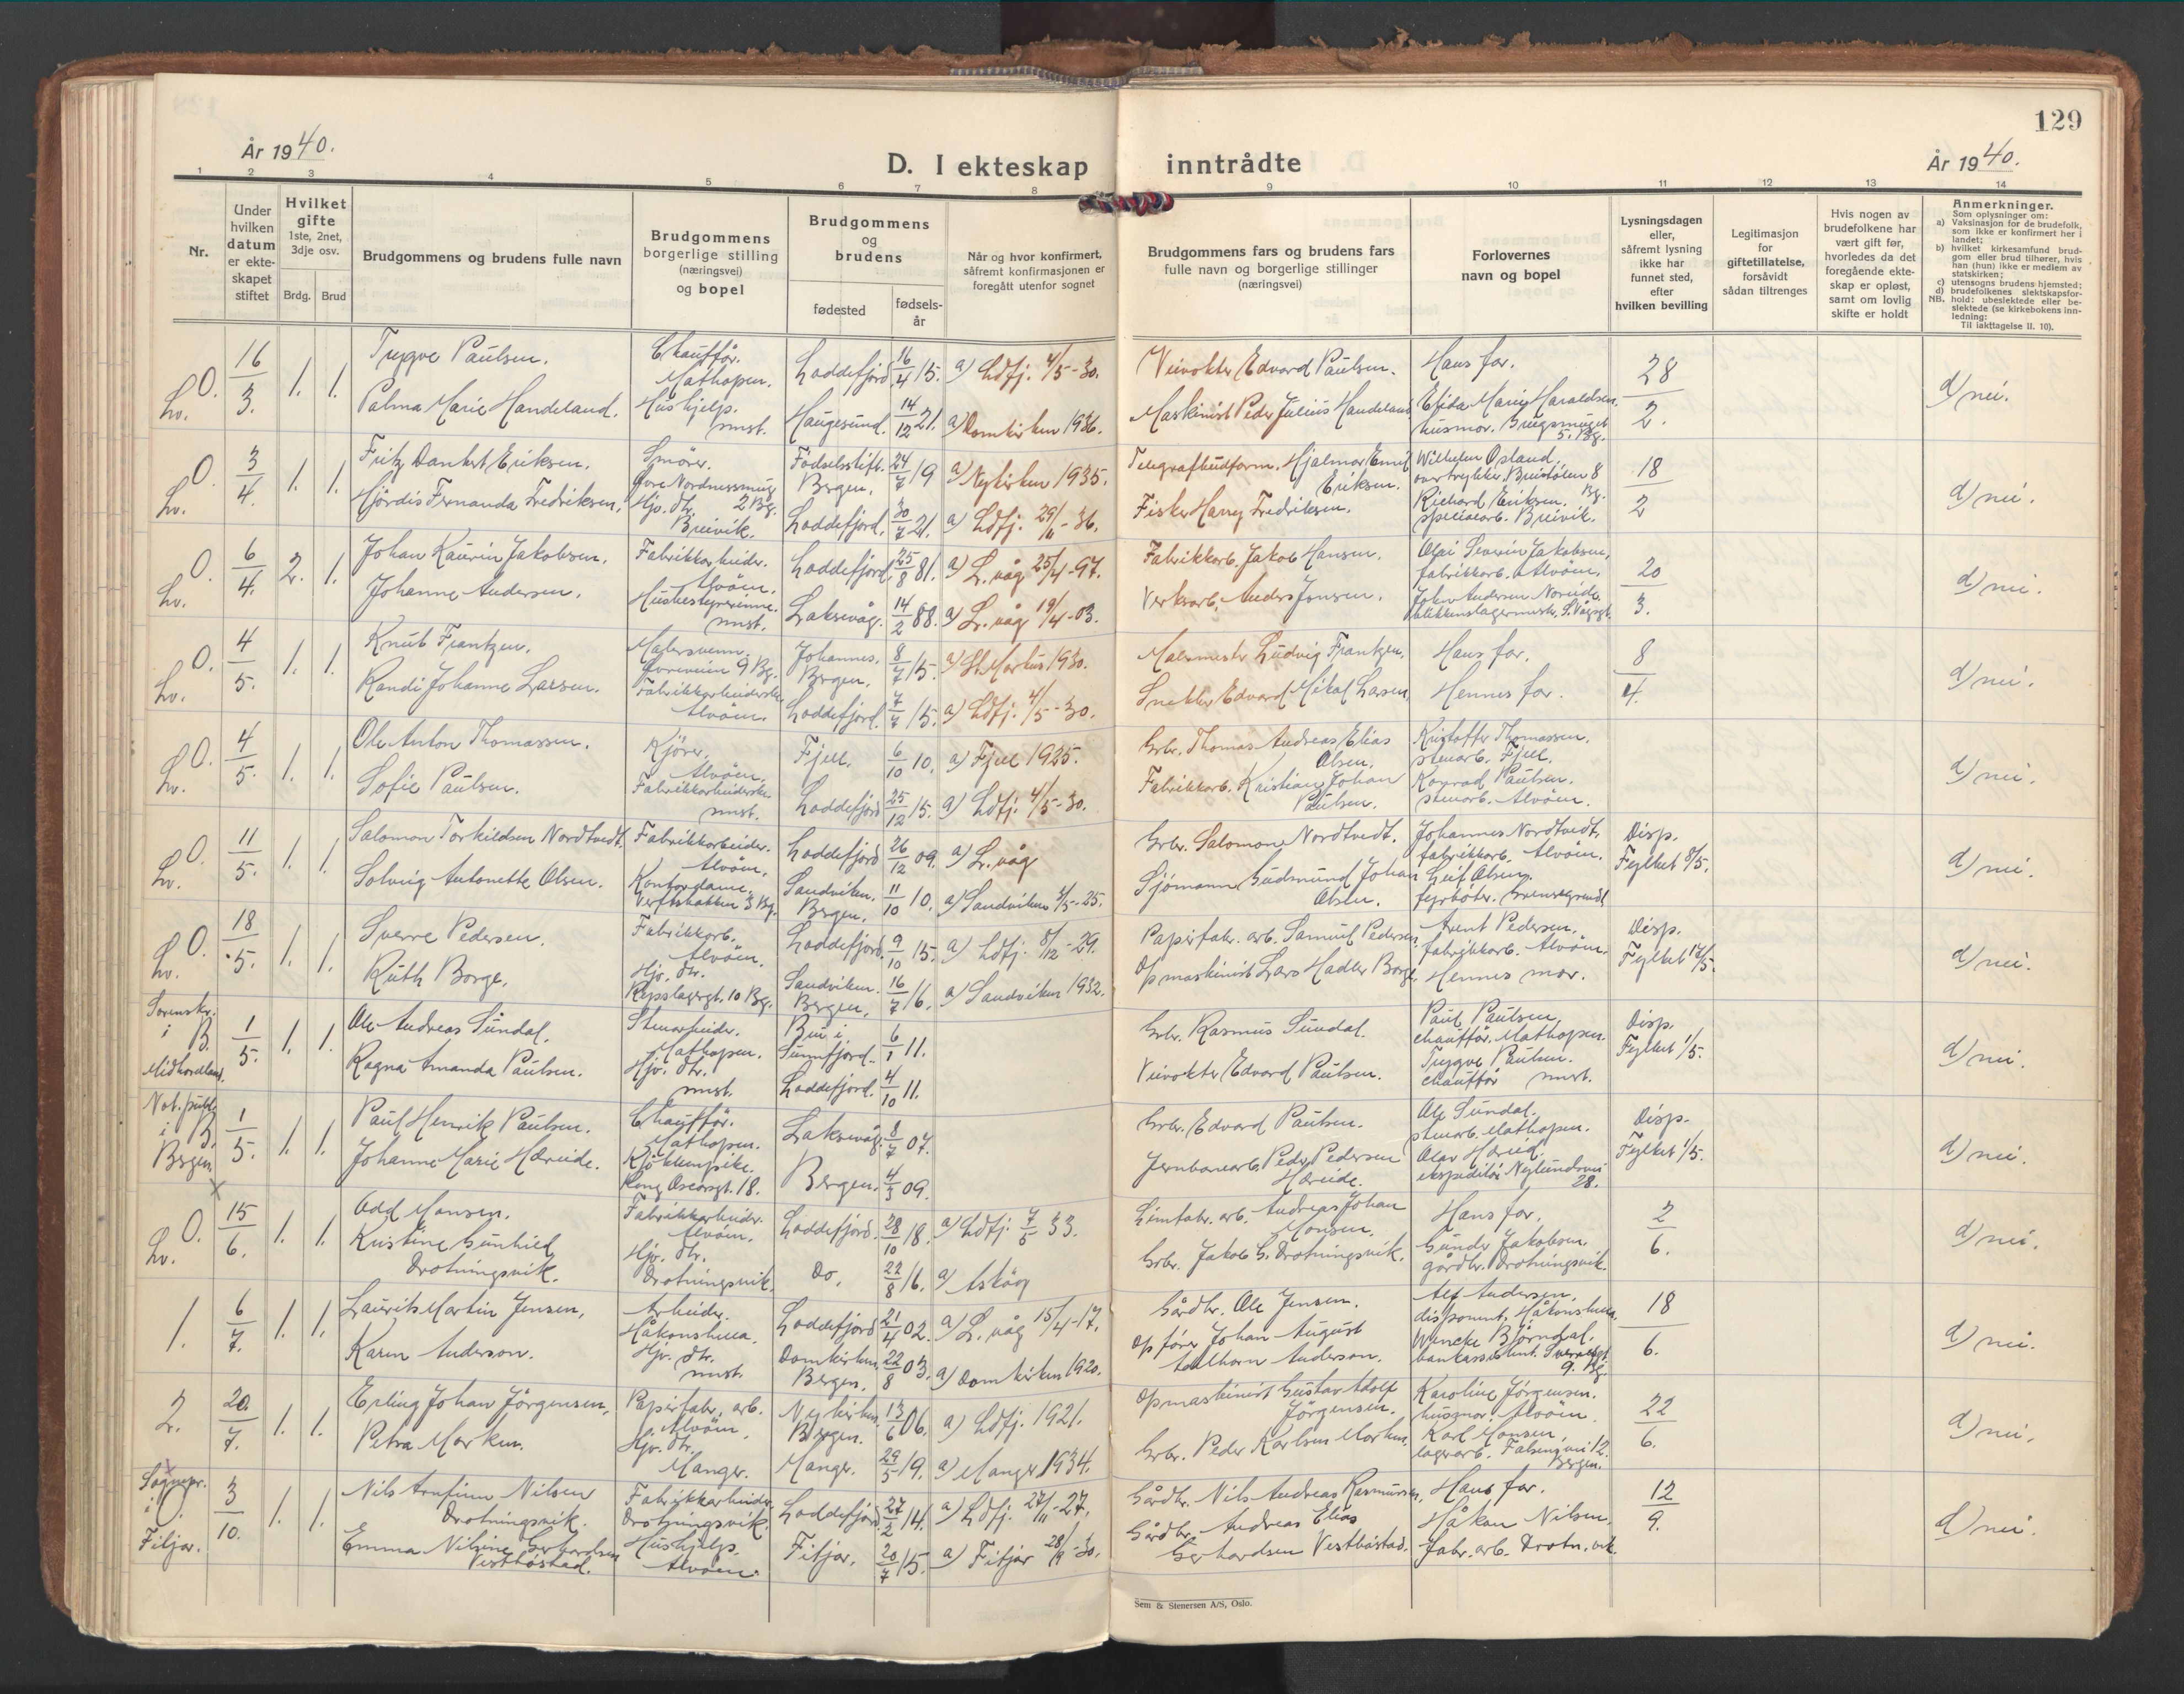 129
År 1940.
D. I ekteskap inntrådte
År 1940.
1 2 3 4 5 6 7 8 9 10 11 12 13 14
Nr.
Under hvilken datum er ekte-skapet stiftet
Hvilket gifte 1ste, 2net, 3dje osv.
Brdg. Brud
Brudgommens og brudens fulle navn
Brudgommens borgerlige stilling (næringsvei) og bopel
Brudgommens og brudens
fødested fødsels-år
Når og hvor konfirmert, såfremt konfirmasjonen er foregått utenfor sognet
Brudgommens fars og brudens fars fulle navn og borgerlige stillinger (næringsvei)
Forlovernes navn og bopel
Lysningsdagen eller, såfremt lysning ikke har funnet sted, efter hvilken bevilling
Legitimasjon for giftetillatelse, forsåvidt sådan tiltrenges
Hvis nogen av brudefolkene har vært gift før, hvorledes da det foregående ekte-skap er opløst, samt om lovlig skifte er holdt
Anmerkninger.
Som oplysninger om:
a) Vaksinasjon for de brudefolk, som ikke er konfirmert her i landet;
b) hvilket kirkesamfund brud-gom eller brud tilhører, hvis han (hun) ikke er medlem av statskirken;
c) utensogns brudens hjemsted;
d) brudefolkenes slektskapsfor-hold: ubeslektede eller be-slektede (se kirkebokens inn-ledning:
NB.
Til iakttagelse II. 10).
O. Lv. 16/3. 1. 1. Trygve Paulsen. Chauffør. Mathopen. Loddefjord 16/4 15. a) Ldfj. 4/5-30. Veivokter Edvard Paulsen. Hans far. 28/2. d) nei.
Palma Marie Handeland. Hushjelp. smst. Haugesund. 14/12 21. a) Domkirken 1936. Maskinist Peder Julius Handeland Elida Marie Haraldsen. husmor.
O. Lv. 3/4. 1. 1. Fritz Dankert Eriksen. Smører. Øvre Nordnessmug 2 Bg. Fødselsstift. Bergen. 24/7 19 a) Nykirken 1935. Telegrafbudform. Hjalmar Emil Eriksen. Wilhelm Opland, 18/2 d) nei.
Hjördis Fernanda Fredriksen. Hjv. dtr. Breivik. Loddefjord. 30/7 21. a) Ldfj. 29/11-36. Fisker Harry Fredriksen. Richard Eriksen. spesialarb. Breivik.
O. Lv. 6/4. 2. 1. Johan Kaurin Jakobsen. Fabrikkarbeider. Alvøen. Loddefjord 25/8 81. a) L. våg 25/4-97. Fabrikkarb. Jakob Hansen. Olai Severin Jakobsen, fabrikkarb. Alvøen. 20/3. d) nei.
Johanne Andersen. Husbestyrerinne. smst. Laksevåg. 14/2 88. a) L. våg 19/4-03. Verksarb. Anders Jensen. John Andersen
O. Lv. 4/5. 1. 1. Knut Frantzen. Malersvenn. Øvreveien 9 Bg. Johannes. Bergen. 8/7 15. a) St. Markus 1930. Malermester Ludvig Frantzen. Hans far. 8/4. d) nei.
Randi Johanne Larsen. Fabrikkarbeiderske Alvøen. Loddefjord. 7/7 15. a) Ldfj. 4/5-30. Snekker Edvard Mikal Larsen. Hennes far.
O. Lv. 4/5. 1. 1. Ole Anton Thomassen. Kjører, Alvøen. Fjell. 6/10 10. a) Fjell 1925. Grbr. Thomas Andreas Elias Olsen. Kristoffer Thomassen. stenarb. Fjell. d) nei.
Sofie Paulsen. Fabrikkarbeiderske. smst. Loddefjord 25/12 15. a) Ldfj. 4/5-30. Fabrikkarb. Kristian Johan Paulsen. Konrad Paulsen. stenarb. Alvøen.
O. Lv. 11/5. 1. 1. Salomon Torkildsen Nordtvedt. Fabrikkarbeider. Alvøen. Loddefjord 26/12 09. a) L. våg Grbr. Salomon Nordtvedt. Johannes Nordtvedt, fabrikkarb. Alvøen. Disp. Fylket 8/5. d) nei.
Solveig Antonette Olsen. Kontordame. Verftsbakken 3 Bg. Sandviken. Bergen. 11/10 10. a) Sandviken 3/5-25. Sjømann Gudmund Johan Olsen. Leif Olsen. fyrbøter.
O. Lv. 18/5. 1. 1. Sverre Pedersen. Fabrikkarb. Alvøen. Loddefjord. 9/10 15. a) Ldfj. 8/12-29. Papirfabr. arb. Samuel Pedersen. Arent Pedersen. fabrikkarb. Alvøen. Disp. Fylket 14/5. d) nei.
Ruth Borge. Hjv. dtr. Repslagergt. 10 Bg. Sandviken. Bergen. 16/7 16. a) Sandviken 1932. Opmaskinist Lars Hadler Borge. Hennes mor.
Sorenskr. i B. Midhordland. 1/5. 1. 1. Ole Andreas Sundal. Stenarbeider. Mathopen. Bru i Sunnfjord. 6/1 11. Grbr. Rasmus Sundal. Paul Paulsen, chauffør. Mathopen. Disp. Fylket 1/5. d) nei.
Ragna Amanda Paulsen. Hjv. dtr. smst. Loddefjord. 4/10 11. Veivokter Edvard Paulsen. Trygve Paulsen. chauffør smst.
Not. publ. i B. Bergen. 1/5. 1. 1. Paul Henrik Paulsen. Chauffør. Mathopen. Laksevåg. 8/7 07. Grbr. Edvard Paulsen. Ole Sundal. stenarb. Mathopen. Disp. Fylket 1/5. d) nei.
Johanne Marie Hæreide. Kjøkkenpike. Kong Oscarsgt. 18. Bergen. 4/3 09. Jernbanearb. Peder Pedersen Hæreide. Olav Hæreid. ekspeditør 28.
X
O. Lv. 15/6. 1. 1. Odd Monsen. Fabrikkarbeider. Alvøen. Loddefjord. 28/10 18. a) Ldfj. 7/5 33. Limfabr. arb. Andreas Johan Monsen. Hans far. 2/6. d) nei.
Kristine Gunhild Drotningsvik. Hjv. dtr. Drotningsvik. Do. 22/8 16. a) Askøy Grbr. Jakob G. Drotningsvik. Gunder Jakobsen. gårdbr. Drotningsvik.
1. 6/7. 1. 1. Laurits Martin Jensen. Arbeider. Håkonshella. Loddefjord 21/4 02. a) L. våg 15/4-17. Gårdbr. Ole Jensen. Alf Andersen, disponent. Håkonshella. 18/6. d) nei.
Karen Anderson. Hjv. dtr. smst. Domkirken Bergen. 22/8 03. a) Domkirken 1920. Opfører Johan August Adelhorn Anderson. Wencke Bjørndal. bankassistent. 9. Bg.
2. 20/7. 1. 1. Erling Johan Jörgensen. Papirfabr. arb. Alvøen. Nykirken. Bergen. 13/6 06. a) Ldfj. 1921. Opmaskinist Gustav Adolf Jörgensen. Karoline Jörgensen. husmor. Alvøen. 22/6. d) nei.
Petra Morken. Hjv. dtr. Manger. Manger. 29/5 19. a) Manger 1934. Grbr. Peder Karlsen Morken. Karl Monsen, lagerarb. 12. Bergen.
Sognepr. i O. Fitjar. 3/10. 1. 1. Nils Arnfinn Nilsen Drotningsvik. Fabrikkarbeider. Drotningsvik. Loddefjord 27/2 14. a) Ldfj. 27/11-27. Gårdbr. Nils Andreas Rasmussen. Hans far. 12/9. d) nei.
Emma Nilsine Gerhardsen Vestbøstad. Hushjelp. Alvøen. Fitjar. 20/7 15. a) Fitjar 28/9-30. Gårdbr. Andreas Elias Gerhardsen Vestbøstad. Håkon Nilsen. fabr. arb. Drotn. vik.
Sem & Stenersen A/S, Oslo.